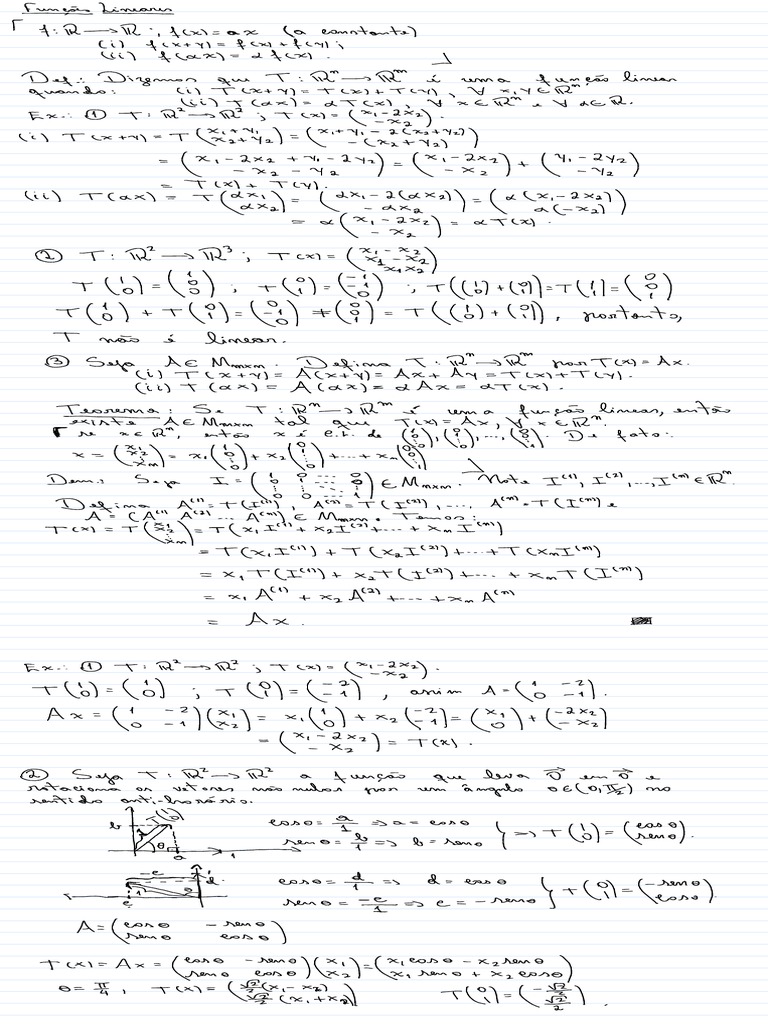 Funções Lineares
f: ℝ → ℝ ; f(x) = ax (a constante)
(i) f(x+y) = f(x) + f(y) ;
(ii) f(αx) = αf(x) .
Def.: Dizemos que T: ℝⁿ → ℝᵐ é uma função linear
quando: (i) T(x+y) = T(x) + T(y), ∀ x, y ∈ ℝⁿ.
(ii) T(αx) = αT(x), ∀ x ∈ ℝⁿ e ∀ α ∈ ℝ.
Ex.: ① T: ℝ² → ℝ² ; T(x) = (x₁ - 2x₂ / -x₂).
(i) T(x+y) = T(x₁+y₁ / x₂+y₂) = (x₁+y₁ - 2(x₂+y₂) / -(x₂+y₂))
= (x₁ - 2x₂ + y₁ - 2y₂ / -x₂ - y₂) = (x₁ - 2x₂ / -x₂) + (y₁ - 2y₂ / -y₂)
= T(x) + T(y).
(ii) T(αx) = T(αx₁ / αx₂) = (αx₁ - 2(αx₂) / -αx₂) = (α(x₁ - 2x₂) / α(-x₂))
= α(x₁ - 2x₂ / -x₂) = αT(x) .
② T: ℝ² → ℝ³ ; T(x) = (x₁ - x₂ / x₁ - x₂ / x₁x₂)
T(1 / 0) = ; T(0 / 1) = (-1 / -1 / 0) ; T((1 / 0) + (0 / 1)) = T(1 / 1) = (0 / 0 / 1)
T(1 / 0) + T(0 / 1) = ≠ (0 / 0 / 1) = T((1 / 0) + (0 / 1)), portanto,
T não é linear.
③ Seja A ∈ Mₘₓₙ. Defina T: ℝⁿ → ℝᵐ por T(x) = Ax.
(i) T(x+y) = A(x+y) = Ax + Ay = T(x) + T(y).
(ii) T(αx) = A(αx) = αAx = αT(x) .
Teorema: Se T: ℝⁿ → ℝᵐ é uma função linear, então
existe A ∈ Mₘₓₙ tal que T(x) = Ax, ∀ x ∈ ℝⁿ.
Γ se x ∈ ℝⁿ, então x é c.l. de (1 / 0 / ⋮ / 0), (0 / 1 / ⋮ / 0), ..., (0 / 0 / ⋮ / 1). De fato:
x = (x₁ / x₂ / ⋮ / xₙ) = x₁(1 / 0 / ⋮ / 0) + x₂(0 / 1 / ⋮ / 0) + ... + xₙ(0 / 0 / ⋮ / 1)
Dem.: Seja I = (1 0 ... 0 / 0 1 ... 0 / ⋮ / 0 0 ... 1) ∈ Mₙₓₙ. Note I⁽¹⁾, I⁽²⁾, ..., I⁽ⁿ⁾ ∈ ℝⁿ.
Defina A⁽¹⁾ = T(I⁽¹⁾), A⁽²⁾ = T(I⁽²⁾), ..., A⁽ⁿ⁾ = T(I⁽ⁿ⁾) e
A = (A⁽¹⁾ A⁽²⁾ ... A⁽ⁿ⁾) ∈ Mₘₓₙ. Temos:
T(x) = T(x₁ / x₂ / ⋮ / xₙ) = T(x₁I⁽¹⁾ + x₂I⁽²⁾ + ... + xₙI⁽ⁿ⁾)
= T(x₁I⁽¹⁾) + T(x₂I⁽²⁾) + ... + T(xₙI⁽ⁿ⁾)
= x₁T(I⁽¹⁾) + x₂T(I⁽²⁾) + ... + xₙT(I⁽ⁿ⁾)
= x₁A⁽¹⁾ + x₂A⁽²⁾ + ... + xₙA⁽ⁿ⁾
= Ax .
Ex.: ① T: ℝ² → ℝ² ; T(x) = (x₁ - 2x₂ / -x₂).
T(1 / 0) = (1 / 0) ; T(0 / 1) = (-2 / -1) , assim A = (1 -2 / 0 -1).
Ax = (1 -2 / 0 -1)(x₁ / x₂) = x₁(1 / 0) + x₂(-2 / -1) = (x₁ / 0) + (-2x₂ / -x₂)
= (x₁ - 2x₂ / -x₂) = T(x) .
② Seja T: ℝ² → ℝ² a função que leva 0⃗ em 0⃗ e
rotaciona os vetores não nulos por um ângulo θ ∈ (0, π/2) no
sentido anti-horário.
b T(1 / 0) θ a 1
cosθ = a/1 ⇒ a = cosθ
senθ = b/1 ⇒ b = senθ } ⇒ T(1 / 0) = (cosθ / senθ).
-c d 1 θ c
cosθ = d/1 ⇒ d = cosθ
senθ = -c/1 ⇒ c = -senθ } T(0 / 1) = (-senθ / cosθ)
A = (cosθ -senθ / senθ cosθ)
T(x) = Ax = (cosθ -senθ / senθ cosθ)(x₁ / x₂) = (x₁cosθ - x₂senθ / x₁senθ + x₂cosθ)
θ = π/4 , T(x) = (√2/2(x₁ - x₂) / √2/2(x₁ + x₂)) T(0 / 1) = (-√2/2 / √2/2) .